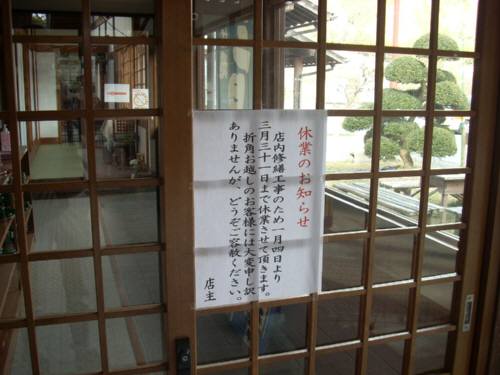 休業のお知らせ
店内修繕工事のため一月四日より
三月三十一日まで休業させて頂きます。
折角お越しのお客様には大変申し訳
ありませんが、どうぞご容赦ください。
店主